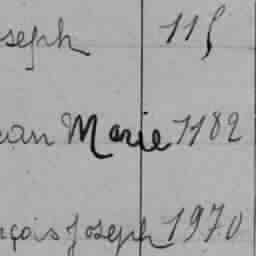 seph 115
ean Marie 1182
nçois Joseph 1970